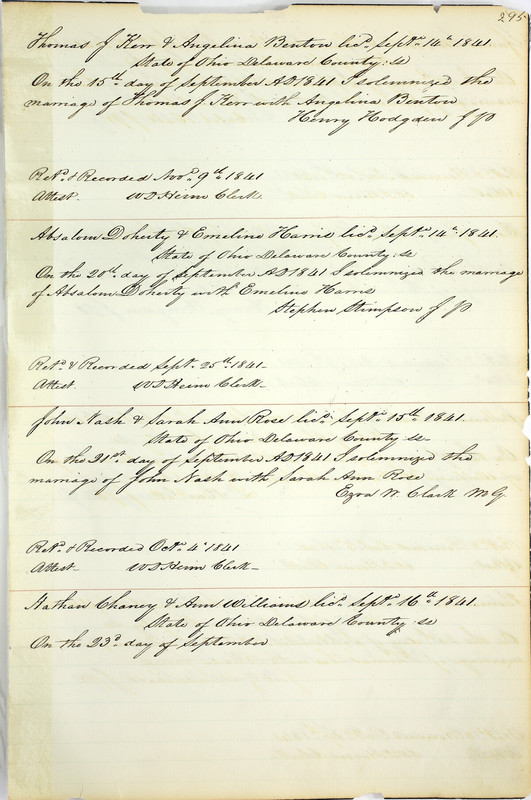 295
Thomas J Kerr & Angelina Benton licd. Septr. 14th 1841.
State of Ohio Delaware County: ss
On the 15th day of September AD 1841 I solemnized the
marriage of Thomas J Kerr with Angelina Benton
Henry Hodgden J P
Retd. & Recorded Novr. 9th 1841
Attest. W D Heim Clerk.
Absalom Doherty & Emeline Harris licd. Septr. 14th 1841.
State of Ohio Delaware County ss
On the 20th day of September AD 1841 I solemnized the marriage
of Absalom Doherty with Emeline Harris
Stephen Stimpson J P
Retd. & Recorded Sept. 25th 1841-
Attest. W D Heim Clerk-
John Nash & Sarah Ann Rose licd. Septr. 15th 1841.
State of Ohio Delaware County ss-
On the 21st day of September AD 1841 I solemnized the
marriage of John Nash with Sarah Ann Rose
Ezra W. Clark M G
Retd. & Recorded Octr. 4th 1841
Attest- W D Heim Clerk-
Nathan Chaney & Ann Williams licd. Septr. 16th 1841.
State of Ohio Delaware County ss
On the 23d. day of September